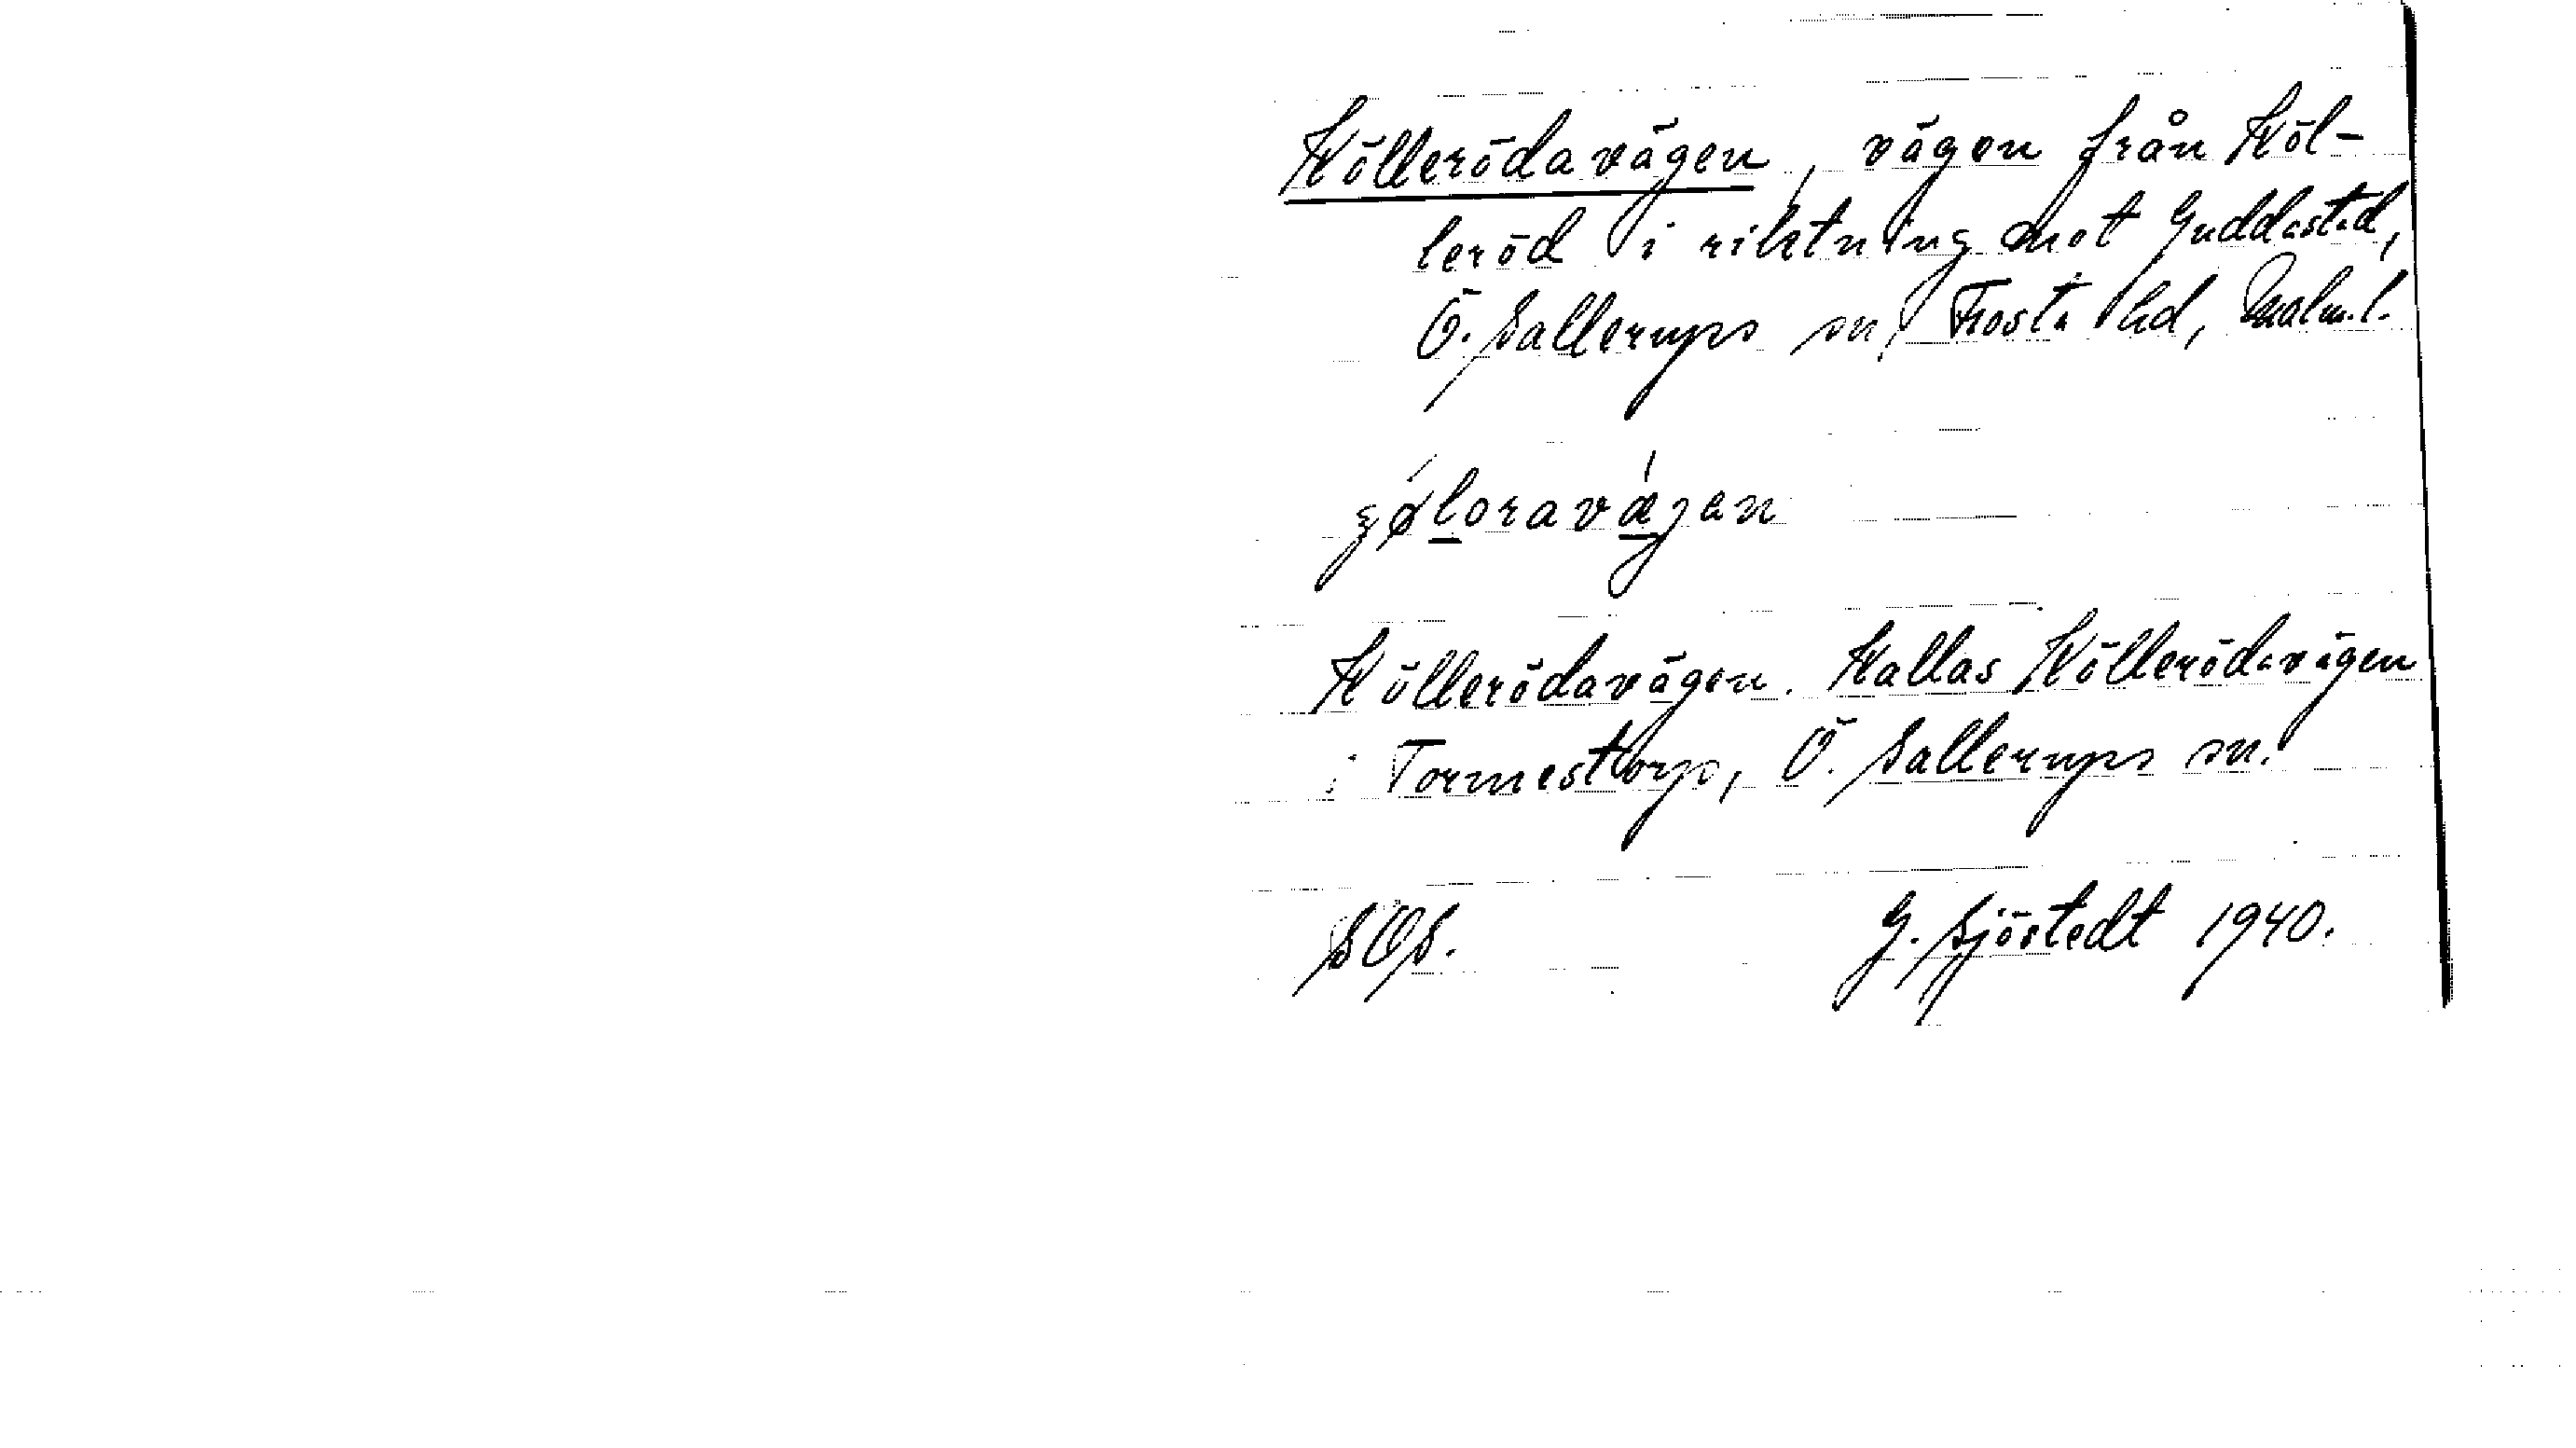 Köllerödavägen, vägen från Köl-
leröd i riktning mot Guddastad,
Ö. Sallerups sn, Frosta hd, Malm.l.
Kölleródavägen. Kallas Köllerödavägen
i Tormestorp, Ö. Sallerups sn.
SOS. G. Sjöstedt 1940.